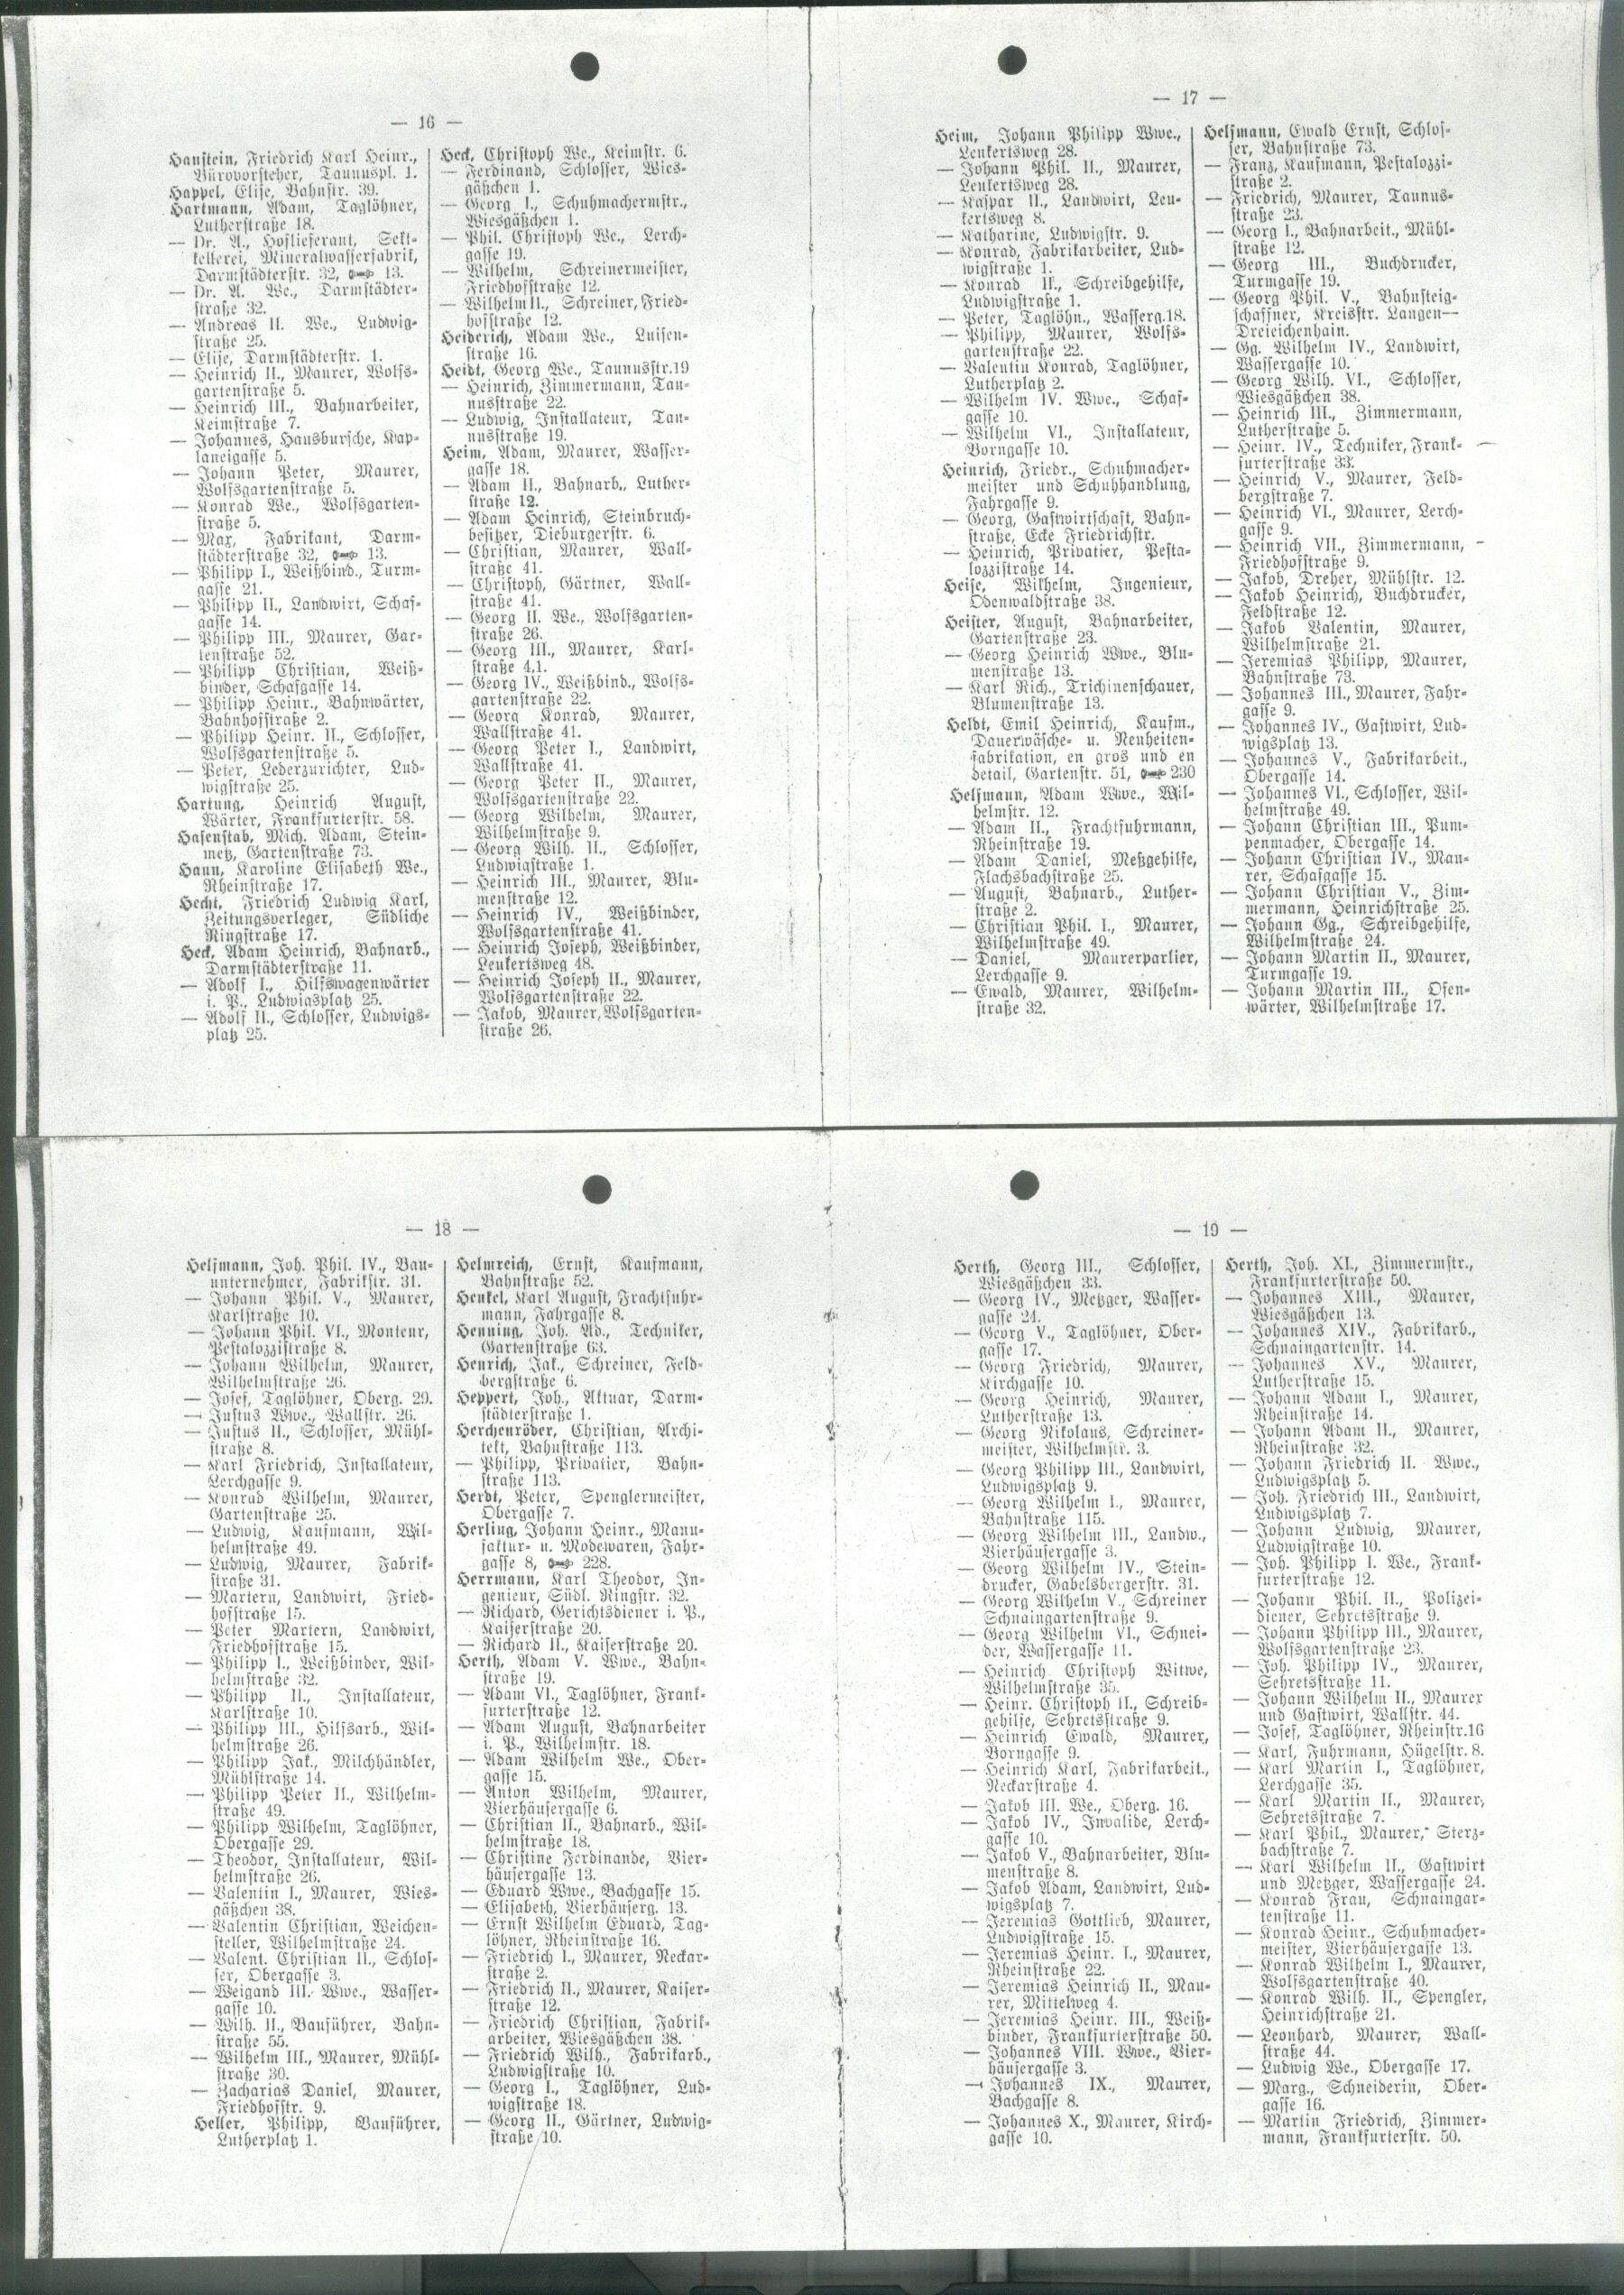 — 16 —
Hanstein, Friedrich Karl Heinr.,
Bürovorsteher, Taunuspl. 1.
Happel, Elise, Bahnstr. 39.
Hartmann, Adam, Taglöhner,
Lutherstraße 18.
— Dr. A., Hoflieferant, Sekt-
kellerei, Mineralwasserfabrik,
Darmstädterstr. 32, 13.
— Dr. A. We., Darmstädter-
straße 32.
— Andreas II. We., Ludwig-
straße 25.
— Elise, Darmstädterstr. 1.
— Heinrich II., Maurer, Wolfs-
gartenstraße 5.
— Heinrich III., Bahnarbeiter,
Keimstraße 7.
— Johannes, Hausbursche, Kap-
laneigasse 5.
— Johann Peter, Maurer,
Wolfsgartenstraße 5.
— Konrad We., Wolfsgarten-
straße 5.
— Max, Fabrikant, Darm-
städterstraße 32, 13.
— Philipp I., Weißbind., Turm-
gasse 21.
— Philipp II., Landwirt, Schaf-
gasse 14.
— Philipp III., Maurer, Gar-
tenstraße 52.
— Philipp Christian, Weiß-
binder, Schafgasse 14.
— Philipp Heinr., Bahnwärter,
Bahnhofstraße 2.
— Philipp Heinr. II., Schlosser,
Wolfsgartenstraße 5.
— Peter, Lederzurichter, Lud-
wigstraße 25.
Hartung, Heinrich August,
Wärter, Frankfurterstr. 58.
Hasenstab, Mich. Adam, Stein-
metz, Gartenstraße 73.
Haun, Karoline Elisabeth We.,
Rheinstraße 17.
Hecht, Friedrich Ludwig Karl,
Zeitungsverleger, Südliche
Ringstraße 17.
Heck, Adam Heinrich, Bahnarb.,
Darmstädterstraße 11.
— Adolf I., Hilfswagenwärter
i. P., Ludwigsplatz 25.
— Adolf II., Schlosser, Ludwigs-
platz 25.
Heck, Christoph We., Keimstr. 6.
— Ferdinand, Schlosser, Wies-
gäßchen 1.
— Georg I., Schuhmachermstr.,
Wiesgäßchen 1.
— Phil. Christoph We., Lerch-
gasse 19.
— Wilhelm, Schreinermeister,
Friedhofstraße 12.
— Wilhelm II., Schreiner, Fried-
hofstraße 12.
Heiderich, Adam We., Luisen-
straße 16.
Heidt, Georg We., Taunusstr. 19
— Heinrich, Zimmermann, Tau-
nusstraße 22.
— Ludwig, Installateur, Tau-
nusstraße 19.
Heim, Adam, Maurer, Wasser-
gasse 18.
— Adam II., Bahnarb., Luther-
straße 12.
— Adam Heinrich, Steinbruch-
besitzer, Dieburgerstr. 6.
— Christian, Maurer, Wall-
straße 41.
— Christoph, Gärtner, Wall-
straße 41.
— Georg II. We., Wolfsgarten-
straße 26.
— Georg III., Maurer, Karl-
straße 4,1.
— Georg IV., Weißbind., Wolfs-
gartenstraße 22.
— Georg Konrad, Maurer,
Wallstraße 41.
— Georg Peter I., Landwirt,
Wallstraße 41.
— Georg Peter II., Maurer,
Wolfsgartenstraße 22.
— Georg Wilhelm, Maurer,
Wilhelmstraße 9.
— Georg Wilh. II., Schlosser,
Ludwigstraße 1.
— Heinrich III., Maurer, Blu-
menstraße 12.
— Heinrich IV., Weißbinder,
Wolfsgartenstraße 41.
— Heinrich Joseph, Weißbinder,
Leukertsweg 48.
— Heinrich Joseph II., Maurer,
Wolfsgartenstraße 22.
— Jakob, Maurer, Wolfsgarten-
straße 26.
— 17 —
Heim, Johann Philipp Wwe.,
Leukertsweg 28.
— Johann Phil. II., Maurer,
Leukertsweg 28.
— Kaspar II., Landwirt, Leu-
kertsweg 8.
— Katharine, Ludwigstr. 9.
— Konrad, Fabrikarbeiter, Lud-
wigstraße 1.
— Konrad II., Schreibgehilfe,
Ludwigstraße 1.
— Peter, Taglöhn., Wasserg. 18.
— Philipp, Maurer, Wolfs-
gartenstraße 22.
— Valentin Konrad, Taglöhner,
Lutherplatz 2.
— Wilhelm IV. Wwe., Schaf-
gasse 10.
— Wilhelm VI., Installateur,
Borngasse 10.
Heinrich, Friedr., Schuhmacher-
meister und Schuhhandlung,
Fahrgasse 9.
— Georg, Gastwirtschaft, Bahn-
straße, Ecke Friedrichstr.
— Heinrich, Privatier, Pesta-
lozzistraße 14.
Heise, Wilhelm, Ingenieur,
Odenwaldstraße 38.
Heister, August, Bahnarbeiter,
Gartenstraße 23.
— Georg Heinrich Wwe., Blu-
menstraße 13.
— Karl Rich., Trichinenschauer,
Blumenstraße 13.
Heldt, Emil Heinrich, Kaufm.,
Dauerwäsche- u. Neuheiten-
fabrikation, en gros und en
detail, Gartenstr. 51, 230
Helfmann, Adam Wwe., Wil-
helmstr. 12.
— Adam II., Frachtfuhrmann,
Rheinstraße 19.
— Adam Daniel, Meßgehilfe,
Flachsbachstraße 25.
— August, Bahnarb., Luther-
straße 2.
— Christian Phil. I., Maurer,
Wilhelmstraße 49.
— Daniel, Maurerparlier,
Lerchgasse 9.
— Ewald, Maurer, Wilhelm-
straße 32.
Helfmann, Ewald Ernst, Schlos-
ser, Bahnstraße 73.
— Franz, Kaufmann, Pestalozzi-
straße 2.
— Friedrich, Maurer, Taunus-
straße 23.
— Georg I., Bahnarbeit., Mühl-
straße 12.
— Georg III., Buchdrucker,
Turmgasse 19.
— Georg Phil. V., Bahnsteig-
schaffner, Kreisstr. Langen—
Dreieichenhain.
— Gg. Wilhelm IV., Landwirt,
Wassergasse 10.
— Georg Wilh. VI., Schlosser,
Wiesgäßchen 38.
— Heinrich III., Zimmermann,
Lutherstraße 5.
— Heinr. IV., Techniker, Frank-
furterstraße 33.
— Heinrich V., Maurer, Feld-
bergstraße 7.
— Heinrich VI., Maurer, Lerch-
gasse 9.
— Heinrich VII., Zimmermann,
Friedhofstraße 9.
— Jakob, Dreher, Mühlstr. 12.
— Jakob Heinrich, Buchdrucker,
Feldstraße 12.
— Jakob Valentin, Maurer,
Wilhelmstraße 21.
— Jeremias Philipp, Maurer,
Bahnstraße 73.
— Johannes III., Maurer, Fahr-
gasse 9.
— Johannes IV., Gastwirt, Lud-
wigsplatz 13.
— Johannes V., Fabrikarbeit.,
Obergasse 14.
— Johannes VI., Schlosser, Wil-
helmstraße 49.
— Johann Christian III., Pum-
penmacher, Obergasse 14.
— Johann Christian IV., Mau-
rer, Schafgasse 15.
— Johann Christian V., Zim-
mermann, Heinrichstraße 25.
— Johann Gg., Schreibgehilfe,
Wilhelmstraße 24.
— Johann Martin II., Maurer,
Turmgasse 19.
— Johann Martin III., Ofen-
wärter, Wilhelmstraße 17.
— 18 —
Helfmann, Joh. Phil. IV., Bau-
unternehmer, Fabrikstr. 31.
— Johann Phil. V., Maurer,
Karlstraße 10.
— Johann Phil. VI., Monteur,
Pestalozzistraße 8.
— Johann Wilhelm, Maurer,
Wilhelmstraße 26.
— Josef, Taglöhner, Oberg. 29.
— Justus Wwe., Wallstr. 26.
— Justus II., Schlosser, Mühl-
straße 8.
— Karl Friedrich, Installateur,
Lerchgasse 9.
— Konrad Wilhelm, Maurer,
Gartenstraße 25.
— Ludwig, Kaufmann, Wil-
helmstraße 49.
— Ludwig, Maurer, Fabrik-
straße 31.
— Martern, Landwirt, Fried-
hofstraße 15.
— Peter Martern, Landwirt,
Friedhofstraße 15.
— Philipp I., Weißbinder, Wil-
helmstraße 32.
— Philipp II., Installateur,
Karlstraße 10.
— Philipp III., Hilfsarb., Wil-
helmstraße 26.
— Philipp Jak., Milchhändler,
Mühlstraße 14.
— Philipp Peter II., Wilhelm-
straße 49.
— Philipp Wilhelm, Taglöhner,
Obergasse 29.
— Theodor, Installateur, Wil-
helmstraße 26.
— Valentin I., Maurer, Wies-
gäßchen 38.
— Valentin Christian, Weichen-
steller, Wilhelmstraße 24.
— Valent. Christian II., Schlos-
ser, Obergasse 3.
— Weigand III. Wwe., Wasser-
gasse 10.
— Wilh. II., Bauführer, Bahn-
straße 55.
— Wilhelm III., Maurer, Mühl-
straße 30.
— Zacharias Daniel, Maurer,
Friedhofstr. 9.
Heller, Philipp, Bauführer,
Lutherplatz 1.
Helmreich, Ernst, Kaufmann,
Bahnstraße 52.
Henkel, Karl August, Frachtfuhr-
mann, Fahrgasse 8.
Henning, Joh. Ad., Techniker,
Gartenstraße 63.
Henrich, Jak., Schreiner, Feld-
bergstraße 6.
Heppert, Joh., Aktuar, Darm-
städterstraße 1.
Herchenröder, Christian, Archi-
tekt, Bahnstraße 113.
— Philipp, Privatier, Bahn-
straße 113.
Herdt, Peter, Spenglermeister,
Obergasse 7.
Herling, Johann Heinr., Manu-
faktur- u. Modewaren, Fahr-
gasse 8, 228.
Herrmann, Karl Theodor, In-
genieur, Südl. Ringstr. 32.
— Richard, Gerichtsdiener i. P.,
Kaiserstraße 20.
— Richard II., Kaiserstraße 20.
Herth, Adam V. Wwe., Bahn-
straße 19.
— Adam VI., Taglöhner, Frank-
furterstraße 12.
— Adam August, Bahnarbeiter
i. P., Wilhelmstr. 18.
— Adam Wilhelm We., Ober-
gasse 15.
— Anton Wilhelm, Maurer,
Vierhäusergasse 6.
— Christian II., Bahnarb., Wil-
helmstraße 18.
— Christine Ferdinande, Vier-
häusergasse 13.
— Eduard Wwe., Bachgasse 15.
— Elisabeth, Vierhäuserg. 13.
— Ernst Wilhelm Eduard, Tag-
löhner, Rheinstraße 16.
— Friedrich I., Maurer, Neckar-
straße 2.
— Friedrich II., Maurer, Kaiser-
straße 12.
— Friedrich Christian, Fabrik-
arbeiter, Wiesgäßchen 38.
— Friedrich Wilh., Fabrikarb.,
Ludwigstraße 10.
— Georg I., Taglöhner, Lud-
wigstraße 18.
— Georg II., Gärtner, Ludwig-
straße 10.
— 19 —
Herth, Georg III., Schlosser,
Wiesgäßchen 33.
— Georg IV., Metzger, Wasser-
gasse 24.
— Georg V., Taglöhner, Ober-
gasse 17.
— Georg Friedrich, Maurer,
Kirchgasse 10.
— Georg Heinrich, Maurer,
Lutherstraße 13.
— Georg Nikolaus, Schreiner-
meister, Wilhelmstr. 3.
— Georg Philipp III., Landwirt,
Ludwigsplatz 9.
— Georg Wilhelm I., Maurer,
Bahnstraße 115.
— Georg Wilhelm III., Landw.,
Vierhäusergasse 3.
— Georg Wilhelm IV., Stein-
drucker, Gabelsbergerstr. 31.
— Georg Wilhelm V., Schreiner
Schnaingartenstraße 9.
— Georg Wilhelm VI., Schnei-
der, Wassergasse 11.
— Heinrich Christoph Witwe,
Wilhelmstraße 35.
— Heinr. Christoph II., Schreib-
gehilfe, Sehretsstraße 9.
— Heinrich Ewald, Maurer,
Borngasse 9.
— Heinrich Karl, Fabrikarbeit.,
Neckarstraße 4.
— Jakob III. We., Oberg. 16.
— Jakob IV., Invalide, Lerch-
gasse 10.
— Jakob V., Bahnarbeiter, Blu-
menstraße 8.
— Jakob Adam, Landwirt, Lud-
wigsplatz 7.
— Jeremias Gottlieb, Maurer,
Ludwigstraße 15.
— Jeremias Heinr. I., Maurer,
Rheinstraße 22.
— Jeremias Heinrich II., Mau-
rer, Mittelweg 4.
— Jeremias Heinr. III., Weiß-
binder, Frankfurterstraße 50.
— Johannes VIII. Wwe., Vier-
häusergasse 3.
— Johannes IX., Maurer,
Bachgasse 8.
— Johannes X., Maurer, Kirch-
gasse 10.
Herth, Joh. XI., Zimmermstr.,
Frankfurterstraße 50.
— Johannes XIII., Maurer,
Wiesgäßchen 13.
— Johannes XIV., Fabrikarb.,
Schnaingartenstr. 14.
— Johannes XV., Maurer,
Lutherstraße 15.
— Johann Adam I., Maurer,
Rheinstraße 14.
— Johann Adam II., Maurer,
Rheinstraße 32.
— Johann Friedrich II. Wwe.,
Ludwigsplatz 5.
— Joh. Friedrich III., Landwirt,
Ludwigsplatz 7.
— Johann Ludwig, Maurer,
Ludwigstraße 10.
— Joh. Philipp I. We., Frank-
furterstraße 12.
— Johann Phil. II., Polizei-
diener, Sehretsstraße 9.
— Johann Philipp III., Maurer,
Wolfsgartenstraße 23.
— Joh. Philipp IV., Maurer,
Sehretsstraße 11.
— Johann Wilhelm II., Maurer
und Gastwirt, Wallstr. 44.
— Josef, Taglöhner, Rheinstr. 16
— Karl, Fuhrmann, Hügelstr. 8.
— Karl Martin I., Taglöhner,
Lerchgasse 35.
— Karl Martin II., Maurer,
Sehretsstraße 7.
— Karl Phil., Maurer, Sterz-
bachstraße 7.
— Karl Wilhelm II., Gastwirt
und Metzger, Wassergasse 24.
— Konrad Frau, Schnaingar-
tenstraße 11.
— Konrad Heinr., Schuhmacher-
meister, Vierhäusergasse 13.
— Konrad Wilhelm I., Maurer,
Wolfsgartenstraße 40.
— Konrad Wilh. II., Spengler,
Heinrichstraße 21.
— Leonhard, Maurer, Wall-
straße 44.
— Ludwig We., Obergasse 17.
— Marg., Schneiderin, Ober-
gasse 16.
— Martin Friedrich, Zimmer-
mann, Frankfurterstr. 50.